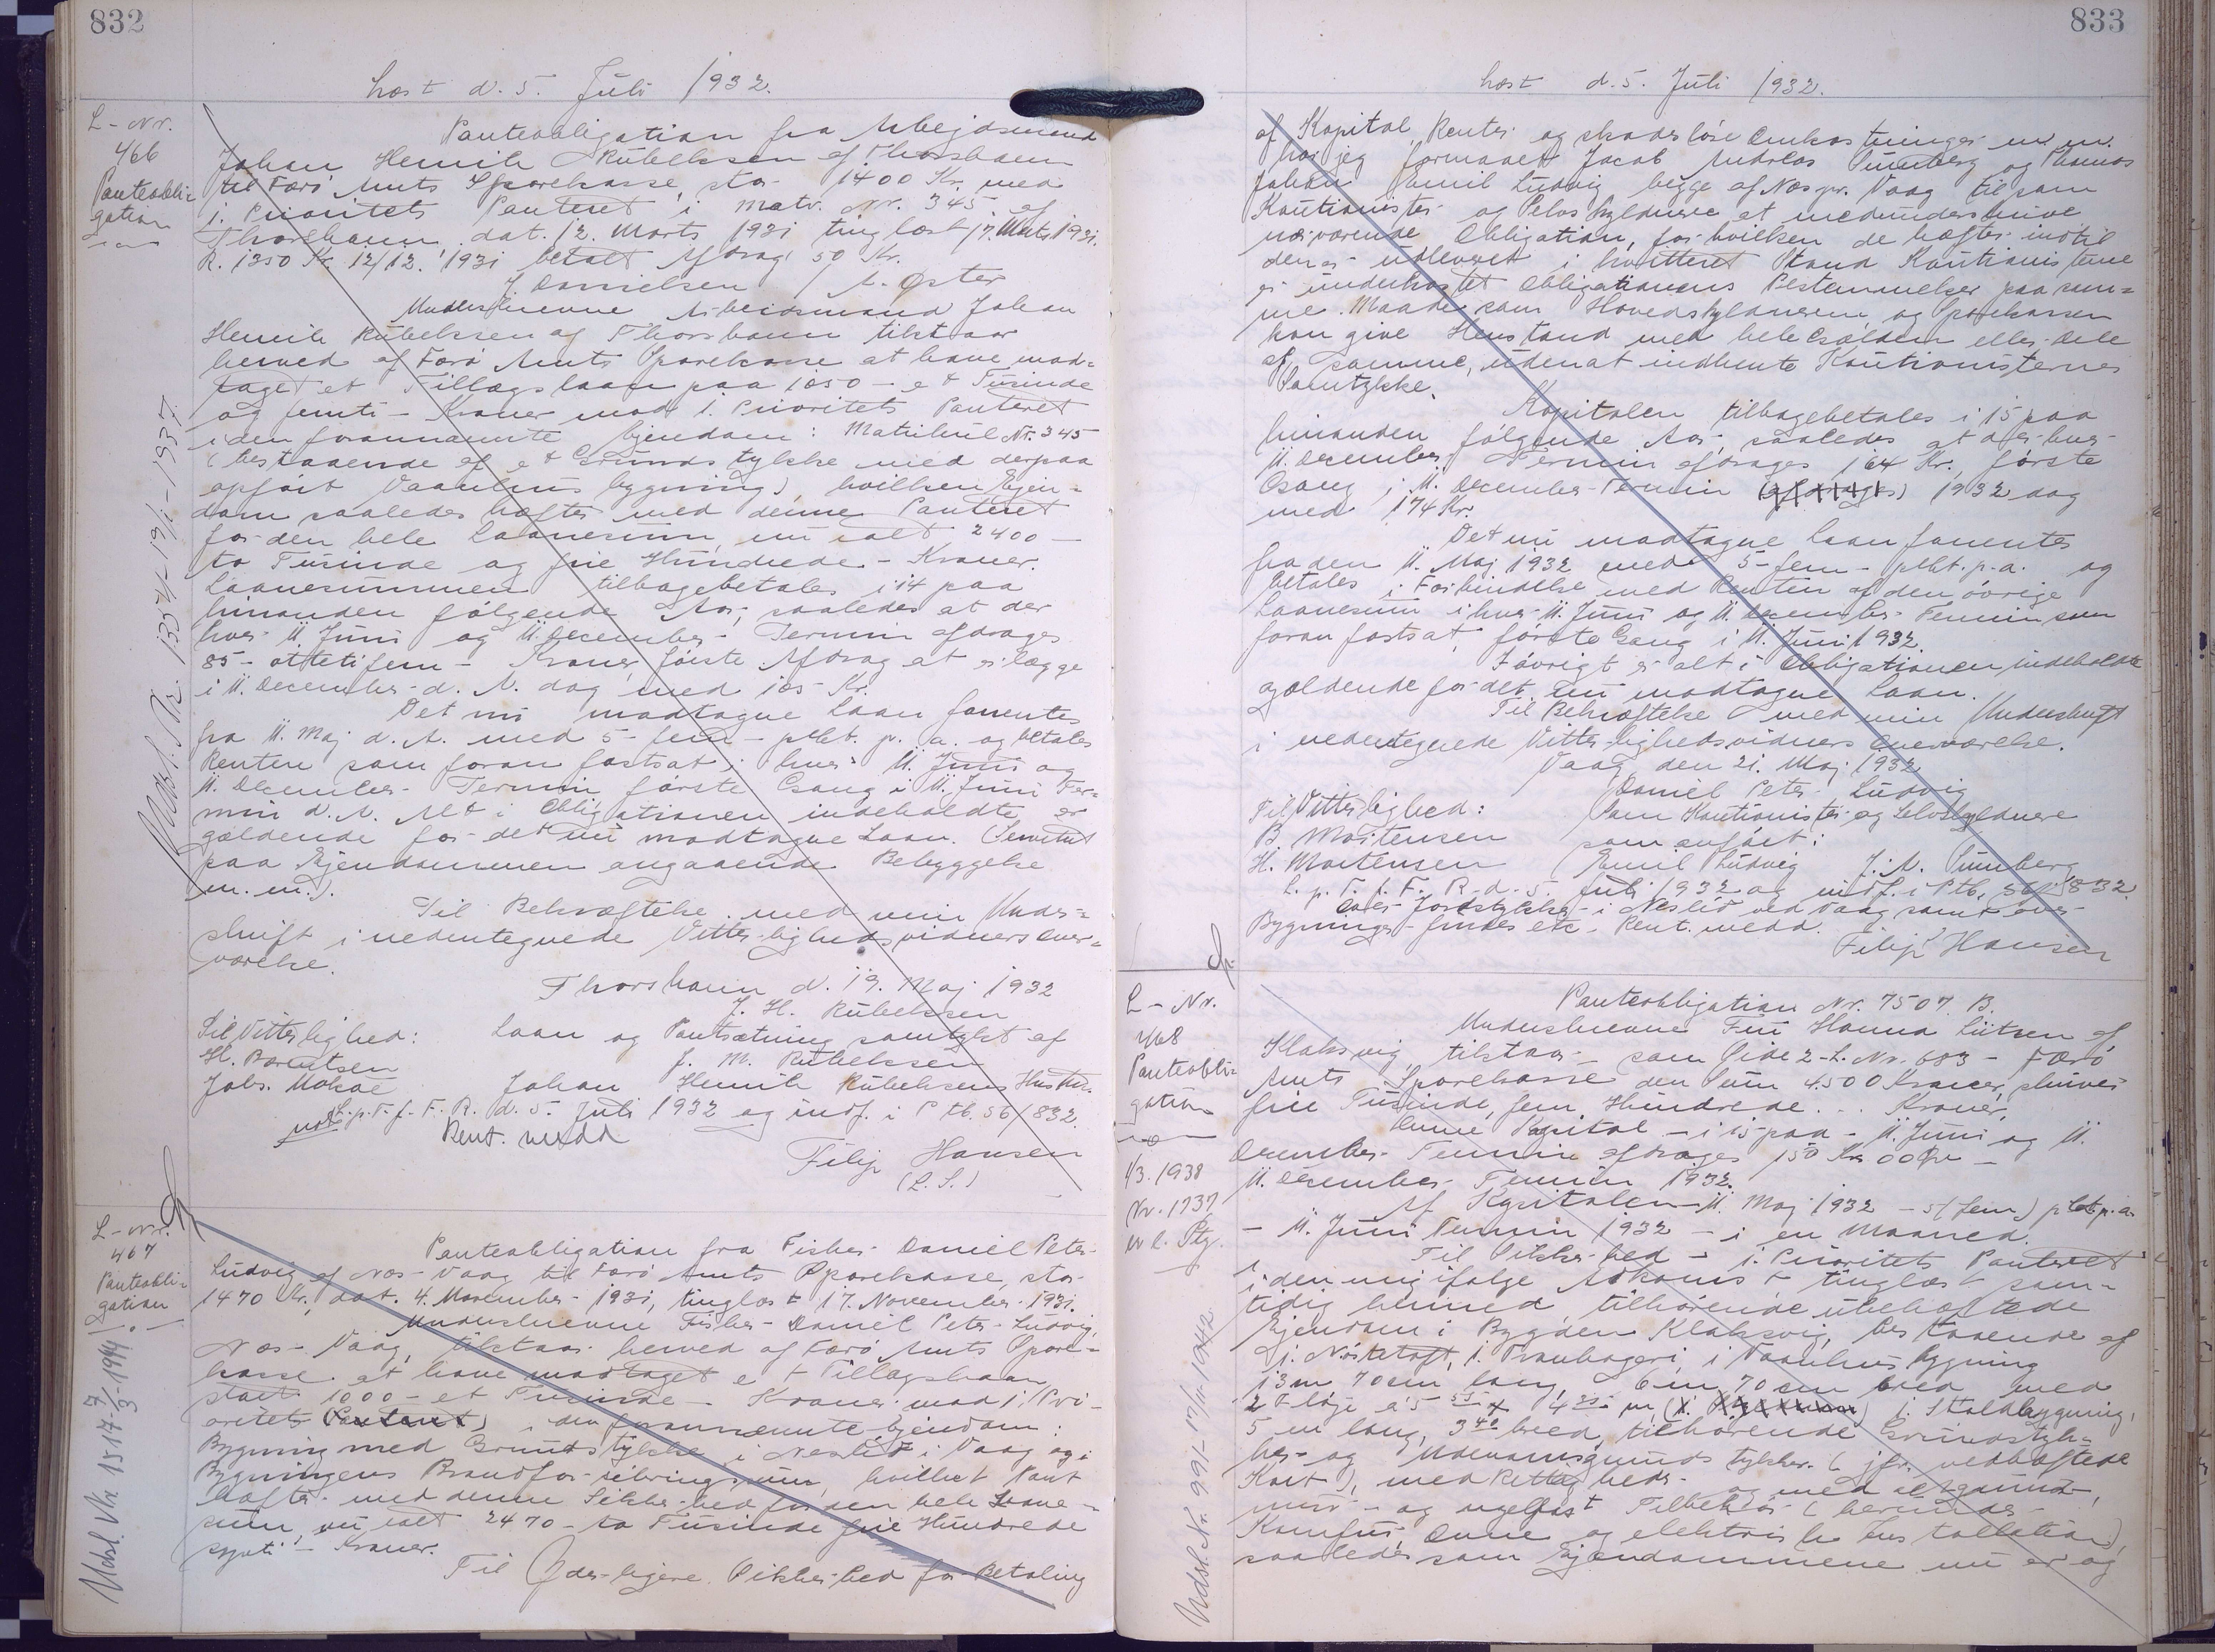 832
Læst d. 5. Juli 1932.
L-Nr.
466
Panteobli-
gation
Panteobligation fra Arbejdsmand
Johan Henrik Rubeksen af Thorshavn
til Færö Amts Sparekasse, stor 1400 Kr. med
1. Prioritets Panteret i Matr. Nr. 345 af
Thorshavn dat. 12. Marts 1931 tinglæst 17. Marts 1931.
R. 1350 Kr. 12/12. 1931 betalt Afdrag 50 Kr.
J. Danielsen / A. Øster
Underskrevne Arbeidsmand Johan
Henrik Rubeksen af Thorshavn tilstaar
herved af Færö Amts Sparekasse at have mod-
taget et Tillægslaan paa 1050 - et Tusinde
og femti - Kroner mod 1. Prioritets Panteret
i den forannævnte Ejendom: Matrikul Nr. 345
(bestaaende af et Grundstykke med derpaa
opfört Vaanhus bygning), hvilken Ejen-
dom saaledes hæfter med denne Panteret
for den hele Laanesum, nu ialt 2400 -
to Tusinde og fire Hundrede - Kroner.
Laanesummen tilbagebetales i 14 paa
hinanden fölgende Aar, saaledes at der
hver 11 Juni og 11. December - Termin afdrages
85 - ottetifem - Kroner, förste Afdrag at erlægge
i 11. December d. A. dog med 105 Kr.
Det nu modtagne Laan forrentes
fra 11. Maj d. A. med 5 - fem - pCt. p. a. og betales
Renten som foran fastsat i hver 11. Juni og
11. December - Termin förste Gang i 11. Juni Ter-
min d. A. Alt i Obligationen indeholdte er
gældende for det nu modtagne Laan. (Servitut
paa Ejendommen angaaende Bebyggelse
m. m.).
Til Bekræftelse med min Under-
skrift i nedentegnede Vitterlighedsvidners Over-
værelse.
Thorshavn d. 19. Maj 1932
J. H. Rubeksen
Til Vitterlighed: Laan og Pantsætning samtykt af
H. Berentsen J. M. Rubeksen
Johs. Mohae Johan Henrik Rubeksens Hustru.
L. p. T. f. F. R. d. 5. Juli 1932 og indf. i Ptb. 56/832.
Rent. medd
Filip Hansen
(L. S.)
Udsl. Nr. 1357 - 19/1 - 1937.
L-Nr.
467
Panteobli-
gation
Udsl. Nr. 1517 - 7/3 - 1944
Panteobligation fra Fisker Daniel Peter
Ludvig af Næs - Vaag til Færö Amts Sparekasse, stor
1470 Kr., dat. 4. November 1931, tinglæst 17. November 1931.
Underskrevne Fisker - Daniel Peter Ludvig,
Næs - Vaag, tilstaar herved af Færö Amts Spare-
kasse at have modtaget et Tillægslaan
stort 1000 - et Tusinde - Kroner mod 1. Pri-
oritets Panteret) i den forannævnte Ejendom:
Bygning med Grundstykke i Neslid i Vaag og i
Bygningens Brandforsikringssum, hvilket Pant
hæfter med denne Sikkerhed for den hele Laane-
sum, nu ialt 2470 - to Tusinde fire Hundrede
syvti - Kroner.
Til Yderligere Sikkerhed for Betaling
833
Læst d. 5. Juli 1932.
af Kapital, Renter og skadeslöse Omkostninger m. m.
har jeg formaaet Jacob Andreas Thunberg og Thomas
Johan Emil Ludvig begge af Næs pr. Vaag til som
Kautionister og Selvskyldnere at medunderskrive
nærværende Obligation, for hvilken de hæfter indtil
den er udleveret i kvitteret Stand Kautionisterne
er underkastet Obligationens Bestemmelser paa sam-
me Maade som Hovedskyldneren, og Sparekassen
kan give Henstand med hele Gælden eller Dele
af samme, uden at indhente Kautionisternes
Samtykke.
Kapitalen tilbagebetales i 15 paa
hinanden fölgende Aar, saaledes at der hver
11. December Termin afdrages 164 Kr., förste
Gang i 11. December-Termin (afdrages) 1932 dog
med 174 Kr.
Det nu modtagne Laan forrentes
fra den 11. Maj 1932 med 5 - fem - pCt. p. a. og
betales i Forbindelse med Renten af den övrige
Laanesum i hver 11. Juni og 11. December - Termin som
foran fastsat, förste Gang i 11. Juni 1932.
Iövrigt er alt i Obligationen indeholdte
gældende for det nu modtagne Laan.
Til Bekræftelse med min Underskrift
i nedentegnede Vitterlighedsvidners Overværelse.
Vaag den 21. Maj 1932
Daniel Peter Ludvig
Til Vitterlighed: Som Kautionister og Selvskyldnere
B. Mortensen som anfört:
H. Mortensen Emil Ludvig J. A.
L. p. T. f. F. R. d. 5. Juli 1932 og indf. i Ptb. 56/832
over Jordstykke i Neslid ved Vaag samt over
Bygninger findes etc. Rent. medd.
Filip Hansen
L-Nr.
468
Panteobli-
gation
1/3. 1938
Nr. 1737
Udsl. Nr. 991 - 17/11 1942.
Panteobligation Nr. 7507. B.
Underskrevne Fru Hanna Lützen af
Klaksvig, tilstaar - som Side 2 - L. Nr. 683 - Færö
Amts Sparekasse den Sum 4500 Kroner, skriver
fire Tusinde, fem Hundrede . . . Kroner.
Denne Kapital - i 15 paa - 11. Juni og 11.
December - Termin afdrages 150 Kr 00 Øre -
11. December - Termin 1932.
Af Kapitalen - 11. Maj 1932 - 5 (fem) pCt. p. a.
- 11. Juni Termin 1932 - i en Maaned.
Til Sikkerhed - 1. Prioritets Panteret
i den mig ifölge Adkomst tinglæst sam-
tidig hermed tilhörende ubehæftede
Ejendom i Bygden Klaksvig, bestaaende af
i Nöstetoft, 1. i Vaanhus bygning
13 m 70 cm lang, 6 m 70 cm bred med
2 Fløje á 5 55 x 4 35 m 1. Staldbygning,
5 m lang, 3 40 bred, tilhörende Grundstyk-
ker og Udenomsgrunds tykker. (jfr. vedhæftede
Kort), med Rettigheder - og med al grund-,
mur- og nagelfast Tilbehör - (herunder
Komfur, Ovne og elektriske Installation),
saaledes som Ejendommene nu er og